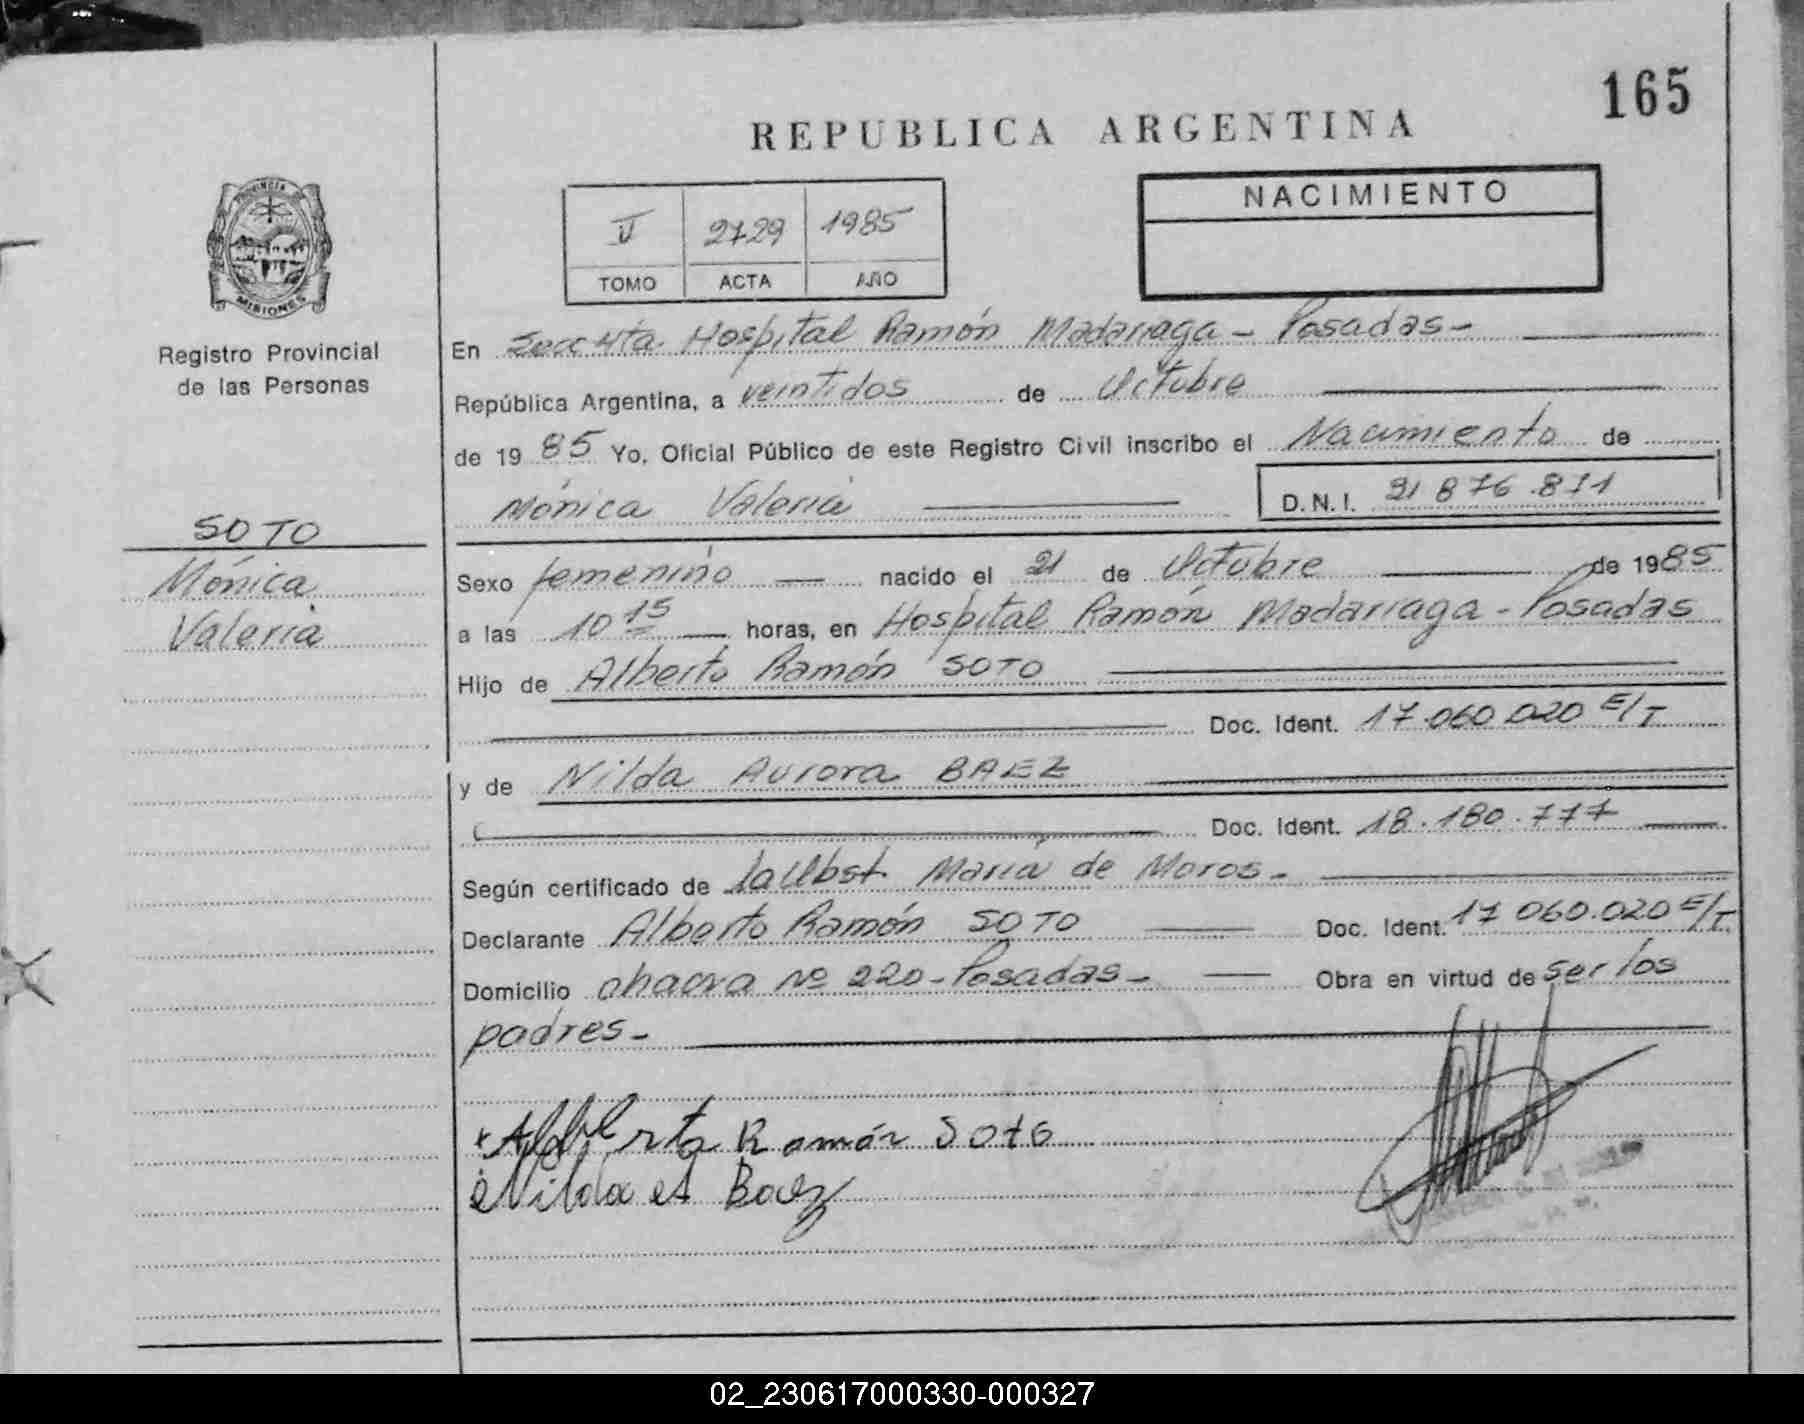 165
REPUBLICA ARGENTINA
PROVINCIA DE
MISIONES
Registro Provincial
de las Personas
SOTO
Mónica
Valeria
V 2729 1985
TOMO ACTA AÑO
NACIMIENTO
En Secc 4ta. Hospital Ramón Madariaga - Posadas -
República Argentina, a veintidos de Octubre
de 1985 Yo, Oficial Público de este Registro Civil inscribo el Nacimiento de
Mónica Valeria D.N.I. 31 876.871
Sexo femenino nacido el 21 de Octubre de 1985
a las 10 15 horas, en Hospital Ramón Madariaga - Posadas
Hijo de Alberto Ramón SOTO
Doc. Ident. 17.060.020 E/T
y de Nilda Aurora BAEZ
Doc. Ident. 18.180.777
Según certificado de la Obst. María de Moros -
Declarante Alberto Ramón SOTO Doc. Ident. 17 060.020 E/T.
Domicilio chacra Nº 220 - Posadas - Obra en virtud de ser los
padres -
Ramón Soto
Nilda A Baez
02_230617000330-000327